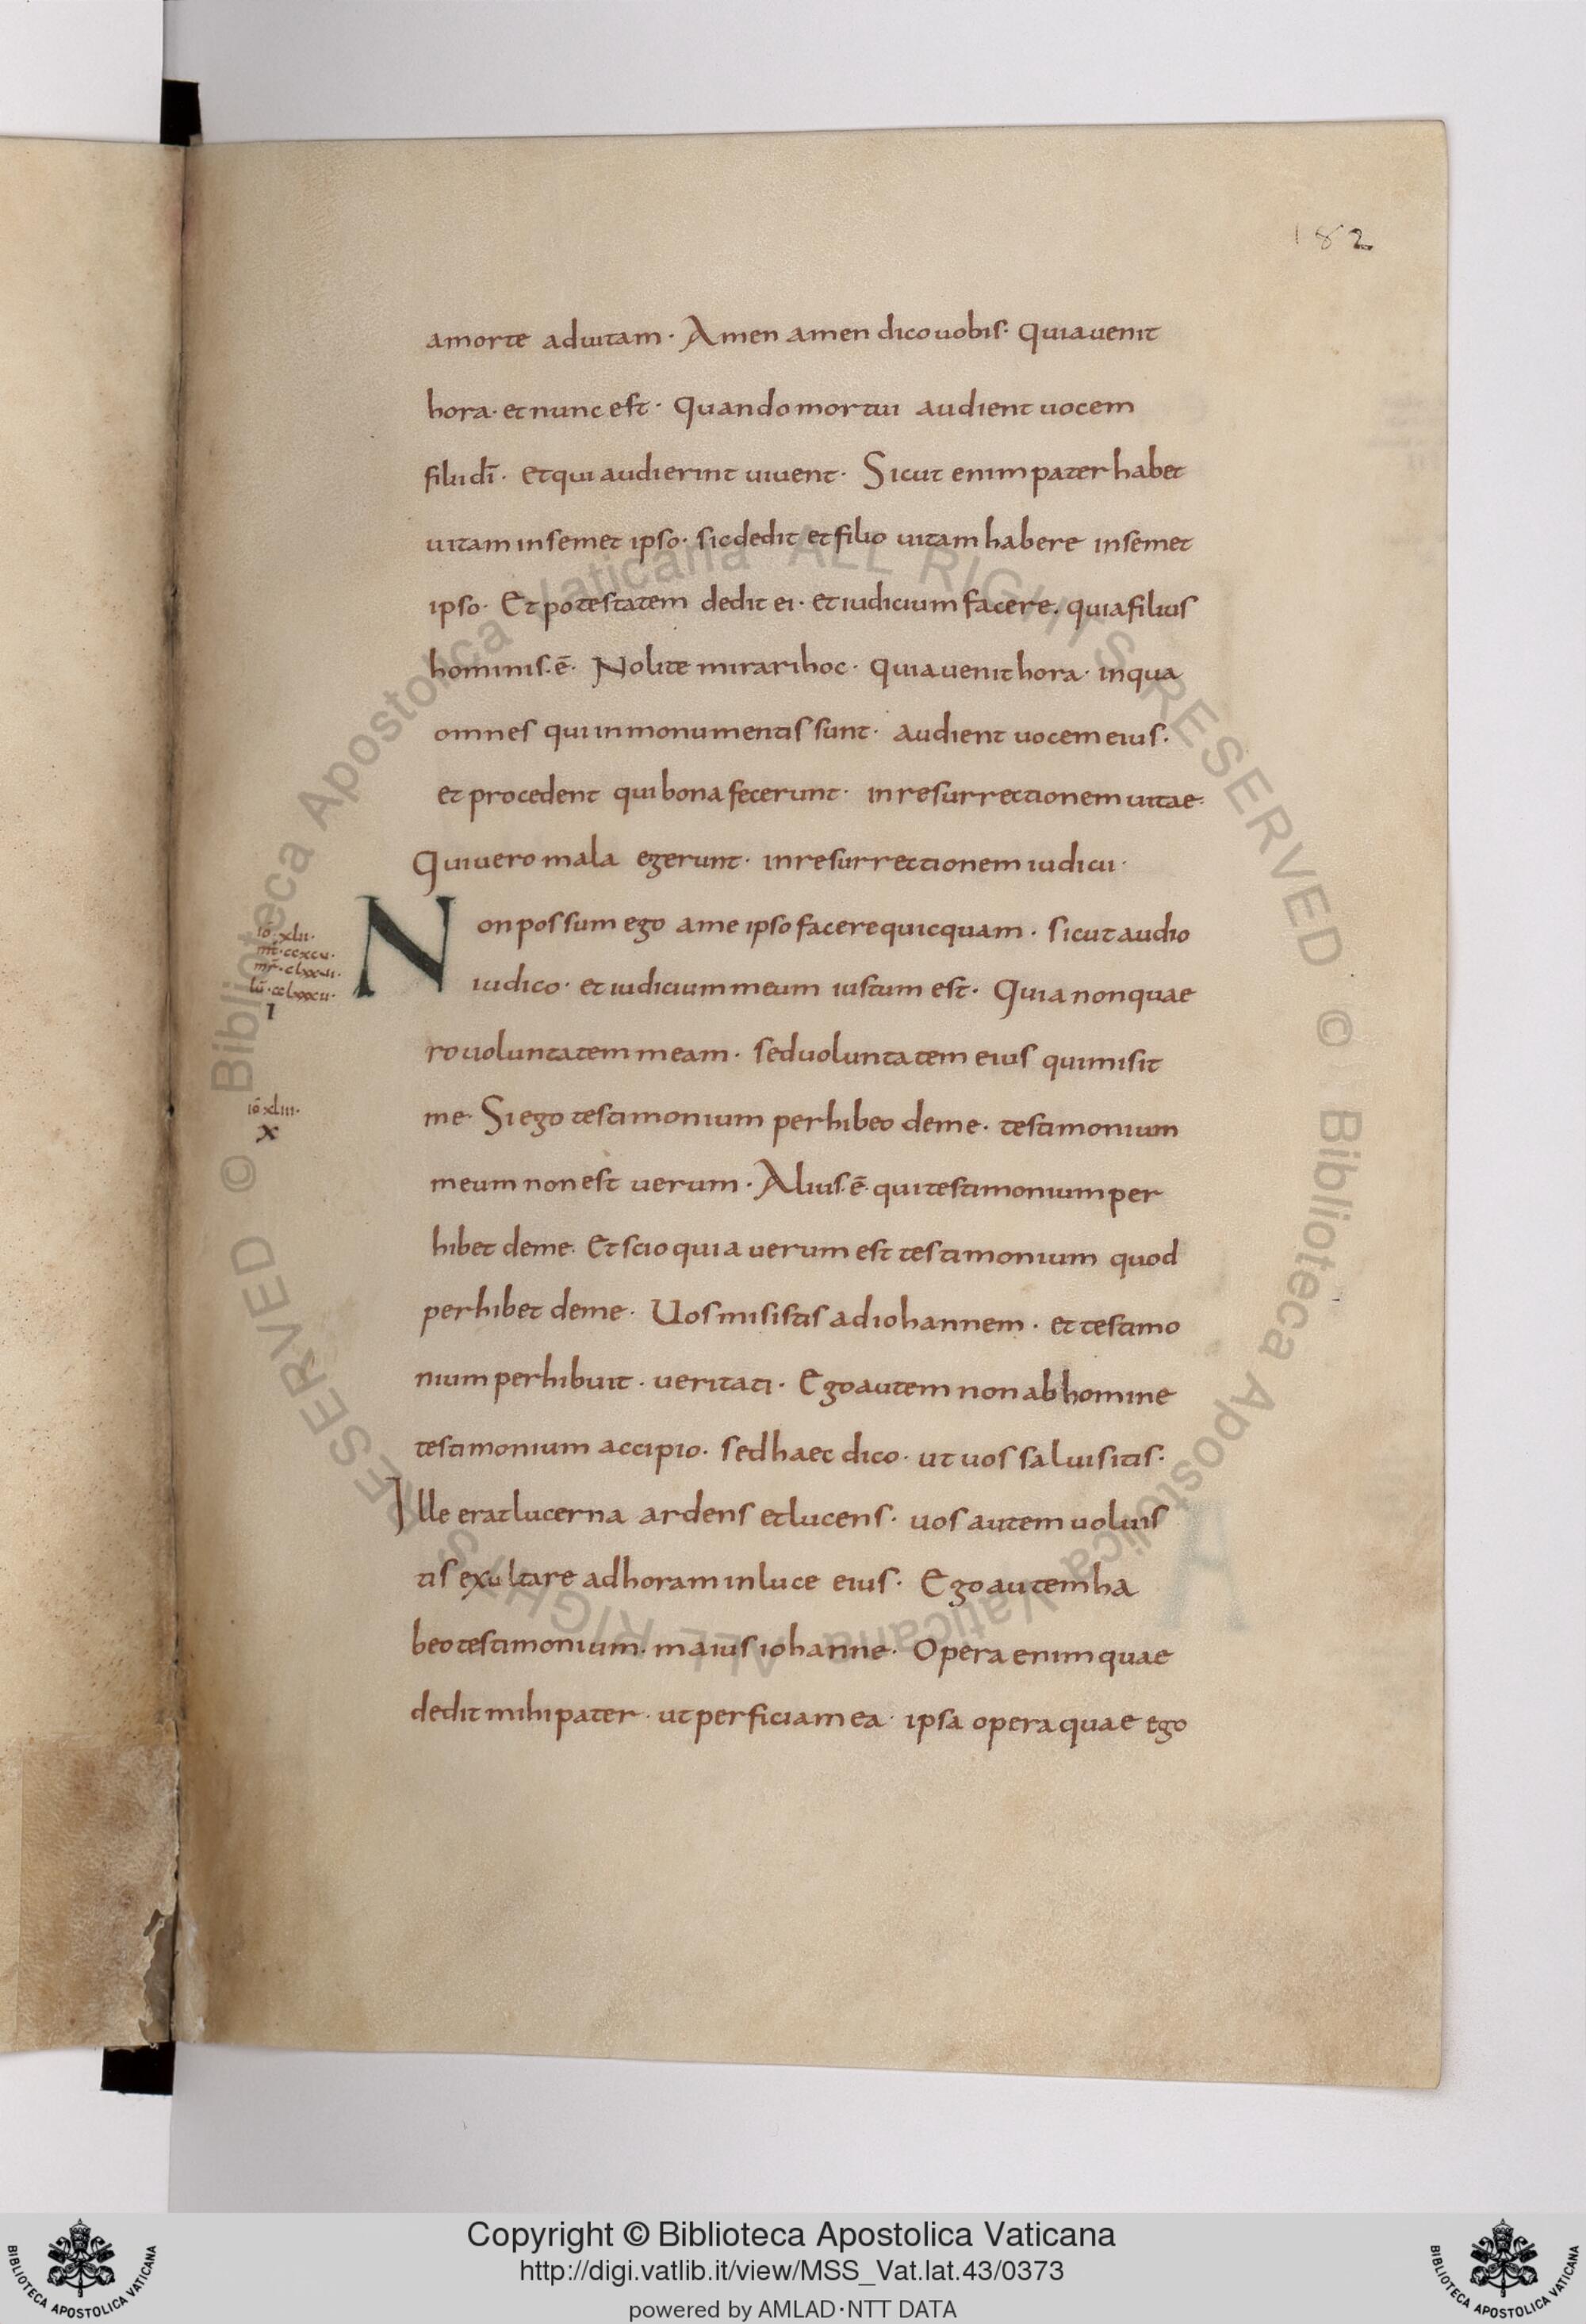 182
amorte aduitam · Amen amen dico uobis · quia uenit
hora · et nunc est · quando mortui audient uocem
filii dī · et qui audierint uiuent · Sicut enim pater habet
uitam in semet ipso · sic dedit et filio uitam habere in semet
ipso · Et potestatem dedit ei · et iudicium facere · quia filius
hominis · ē · Nolite mirari hoc · quia uenit hora · in qua
omnes qui in monumentis sunt · audient uocem eius ·
et procedent qui bona fecerunt · in resurrectionem uitae ·
Qui uero mala egerunt · in resurrectionem iudicii ·
Non possum ego ame ipso facere quicquam · sicut audio
iō · xlii ·
mt̄ · ccxcu ·
iudico · et iudicium meum iustum est · Quia non quae
ī
ro uoluntatem meam · sed uoluntatem eius qui misit
me · Si ego testimonium perhibeo deme · testimonium
iō xliii ·
x
meum non est uerum · Alius · ē · qui testimonium per
hibet deme · Et scio quia uerum est testimonium quod
perhibet deme · Uos misistis ad iohannem · et testimo
nium perhibuit · ueritati · Ego autem non ab homine
testimonium accipio · sed haec dico · ut uos salui sitis ·
Ille erat lucerna ardens et lucens · uos autem uoluis
tis exultare ad horam in luce eius · Ego autem ha
beo testimonium · maius iohanne · Opera enim quae
dedit mihi pater · ut perficiam ea · ipsa opera quae ego
© Biblioteca Apostolica Vaticana ALL RIGHTS RESERVED © Biblioteca Apostolica Vaticana ALL RIGHTS RESERVED
Copyright © Biblioteca Apostolica Vaticana
http://digi.vatlib.it/view/MSS_Vat.lat.43/0373
powered by AMLAD·NTT DATA
BIBLIOTECA APOSTOLICA VATICANA
BIBLIOTECA APOSTOLICA VATICANA